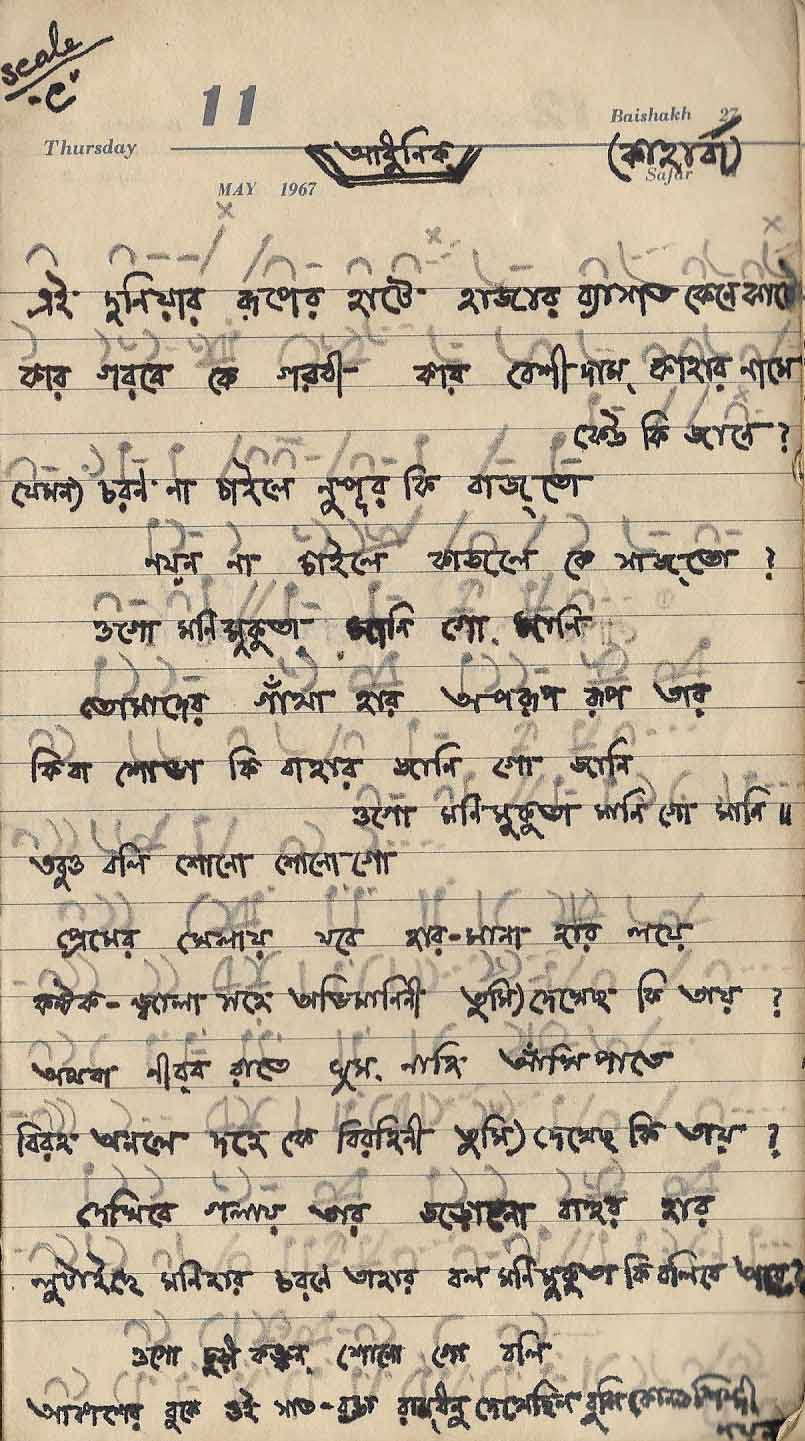 scale
"C"
11
Baishakh 27
Thursday
আধুনিক
(কাহারবা)
Safar
MAY 1967
এই দুনিয়ার রূপের হাটে হাজার ব্যাসাত কেনে কাটে
কার গরবে কে গরবী কার বেশী দাম্ কাহার নামে
কেউ কি জানে ?
যেমন) চরণ না চাইলে নুপূর কি বাজ্‌তো
নয়ন না চাইলে কাজলে কে সাজ্‌তো ?
ওগো মনিমুকুতা মানি গো মানি
তোমাদের গাঁথা হার অপরূপ রূপ তার
কিবা শোভা কি বাহার জানি গো জানি
ওগো মনিমুকুতা মানি গো মানি ॥
তবুও বলি শোনো শোনো গো
প্রেমের মেলায় যবে হার-মানা হার লয়ে
কন্টক-জ্বালা সহে অভিমানিনী তুমি) দেখেছ কি তায় ?
অথবা নীরব রাতে ঘুম নাহি আঁখি পাতে
বিরহ অনলে দহে কে বিরহিনী তুমি) দেখেছ কি তায় ?
দেখিবে গলায় তার জড়োনো বাহুর হার
লুটাইছে মনিহার চরণে তাহার বল মনিমুকুতা কি বলিবে
ওগো চুরি কঙ্কন শোনো গো বলি
আকাশের বুকে ওই সাত-রঙা রামধনু দেখেছিল বুঝি কোন শিল্পী